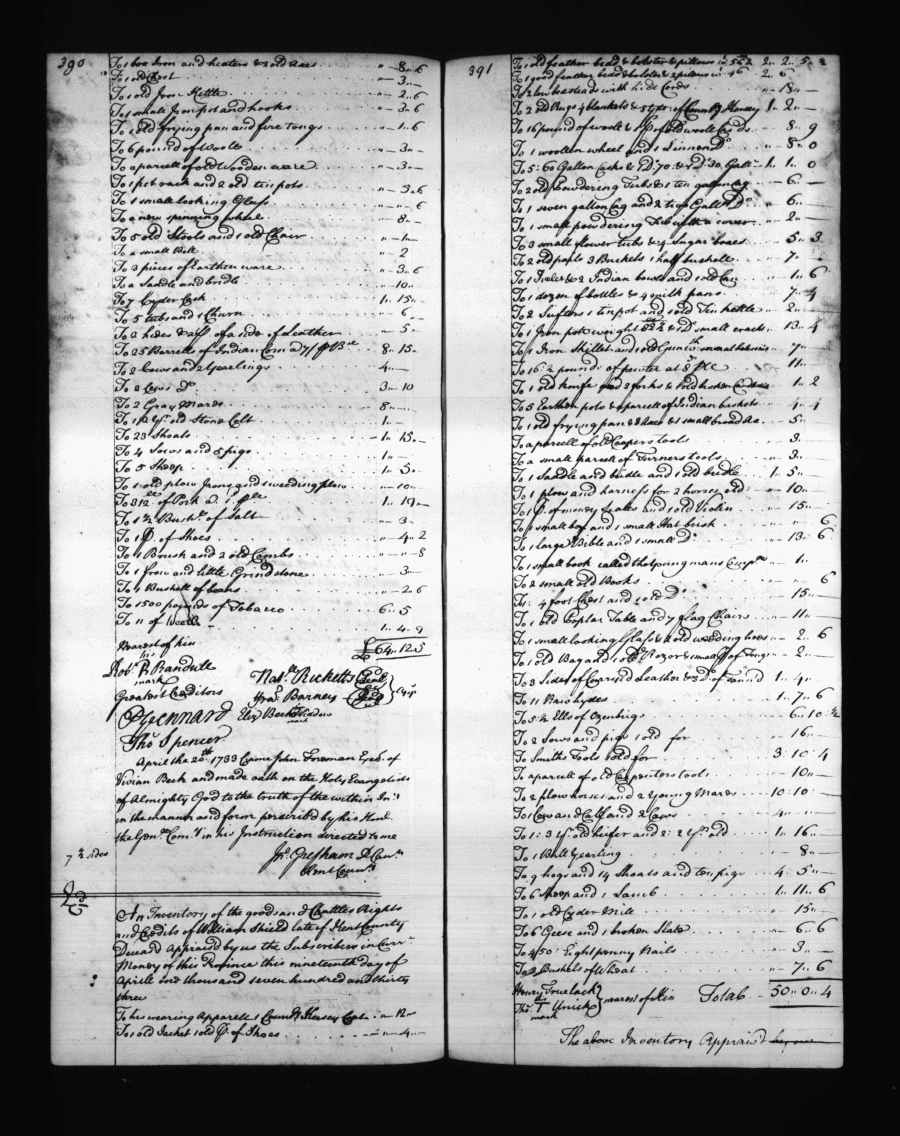 390
To 1 box Iron and heaters & 2 old axes " 8 " 6
To 1 old Chest " 3 "
To 1 old Iron Kettle " 2 " 6
To 1 small Iron pot and hooks " 3 " 6
To 1 old frying pan and fire tongs " 1 " 6
To 6 pound of Wooll " 3 "
To a parcell of old Wooden ware " 3 "
To 1 pot rack and 2 old tin pots " 3 " 6
To 1 small looking Glass " " 6
To a new spinning wheel " 8 "
To 5 old Stools and 1 old Chair " 1 "
To a small Bell " 2
To 3 pieces of Earthen ware " 3 " 6
To a Saddle and bridle " 10 "
To 7 Cyder Cask 1 " 15 "
To 5 tubs and 1 Churn " 6 "
To 2 hides & a of a side of Leather " 5 "
To 25 Barrells of Indian Corn a 7/ 8 " 15 "
To 2 Cows and 2 Yearlings 4 "
To 2 Cows Do 3 " 10
To 2 Gray Mares 8 "
To 1 old Stone Colt 1 "
To 23 Shoats 1 " 15 "
To 4 Sows and 5 pigs 1 "
To 5 Sheep 1 " 5 "
To 1 old plow Irons and weeding plow " 10 "
To 312 of Pork 1 " 19 "
To 1 1/2 Bushs of Salt " 3 "
To 1 pr of Shoes " 4 " 2
To 1 Brush and 2 old Combs " " 8
To 1 frow and little Grindstone " 3 "
To 1 Bushell of beans " 2 " 6
To 1500 pounds of Tobacco 6 " 5
To 11 of 1 " 4 " 9
Nearest of kin £64 " 12 " 5
Robt R Randall
his
mark
Nat Ricketts
Greatest Creditors
Barney
Gennard
Eliz Beck
mark
Thos Spencer
April the 20th 1733 Came John Foreman Exec. of
Vivian Beck and made oath on the Holy Evangelists
of Almighty God to the truth of the within Inv
in the manner and form perscribed by his
the Genl Com in his Instruction directed to me
Gresham D Com
Kent County
7 1/2 sides
An Inventory of the goods and Chattles Rights
and Credits of William Shield late of Kent County
Deceasd Appraisd by us the Subscribers in Curr
Money of this Province this nineteenth day of
Aprill one thousand seven hundred and thirty
three
To his wearing Apparell 1 Country Kersey Coat " 12 "
To 1 old Jacket 1 old pr of Shoes " 4 "
391
To 1 old feather bedd & bolster & pillows 2 " 2 " 5
To 1 good feather bedd & bolster & 2 pillows 2 " 6
To 2 low bedsteads with hide Cords " 18 "
To 2 old Rugs 4 blankets & 5 of Country Kersey 1 " 2 "
To 16 pound of wooll & 1 pr of old wooll Cards " 8 " 9
To 1 woollen wheel and 1 Linnen Do " 8 " 0
To 5 : 60 Gallon Casks & 1 Do 70 & 1 Do 30 Gall 1 " 1 " 0
To 2 old powdering Tubs & 1 ten gallon Cag " 6 "
To 1 seven gallon Cag and 2 two Gallon Do " 6 "
To 1 small powdering Tub with a cover " 2 "
To 3 small flower tubs & 4 Sugar boxes " 5 " 3
To 2 old pails 3 Buckets 1 half bushell " 7 "
To 1 & 2 Indian bowls and 1 old Cag " 1 " 6
To 1 dozen of bottles & 4 milk pans " 7 " 4
To 2 Sifters 1 tin pot and 1 old Tea kettle " 2 "
To 1 Iron pot weight & Do small 13 " 4
To 1 Iron Skillet and 1 old Gun " 7 "
To 16 1/2 pounds of pewter at 8 " 11 "
To 1 old knife and 3 forks & 1 old broken " 1 " 2
To 5 Earthen pots & a parcell of Indian baskets " 4 " 4
To 1 old frying pan & & 1 small broad ax " 5 "
To a parcell of old Coopers tools " 3 "
To a small parcell of Turners tools " 3 "
To 1 Saddle and bridle and 1 old bridle 1 " 5 "
To 1 plow and harness for 2 horses old " 10 "
To 1 pr of money scales and 1 old Violin " 15 "
To 1 small box and 1 small Hat brish " " 6
To 1 large Bible and 1 small Do " 13 " 6
To 1 small book called the young mans " 1 "
To 2 small old Books " " 6
To 1 : 4 foot Chest and 1 old Do " 15 "
To 1 old Poplar Table and 7 flag Chairs " 11 "
To 1 small looking Glass & 2 old weeding hoes " 2 " 6
To 1 old Bag and 1 old Razor & small pr of " 2 "
To 3 Sides of Curried Leather & 3 Do of 1 " 4 "
To 11 Raw hydes 1 " 7 " 6
To 5 1/2 Ells of Ozenbrigs " 6 " 10 1/2
To 2 Sows and pigs sold for " 16 "
To Smiths Tools sold for 3 " 10 " 4
To a parcell of old Carpenters tools " 10 "
To 2 plow horses and 2 young Mares 10 " 10 "
To 1 Cow and Calf and 2 Cows 4 "
To 1 : 3 Yr old heifer and 2 : 2 Yr old 1 " 16 "
To 1 Bull Yearling " 8 "
To 9 hogs and 14 Shoats and ten pigs 4 " 5 "
To 6 Sheep and 1 Lamb 1 " 11 " 6
To 1 old Cyder Mill " 15 "
To 6 Geese and 1 broken Slate " 6 " 6
To 450 : Eight penny Nails " 3 "
To 2 Bushels of Wheat " 7 " 6
Henry Trulack
Thos T Unick
mark
nearest of kin Totab 50 " 0 " 4
The above Inventory Appraisd